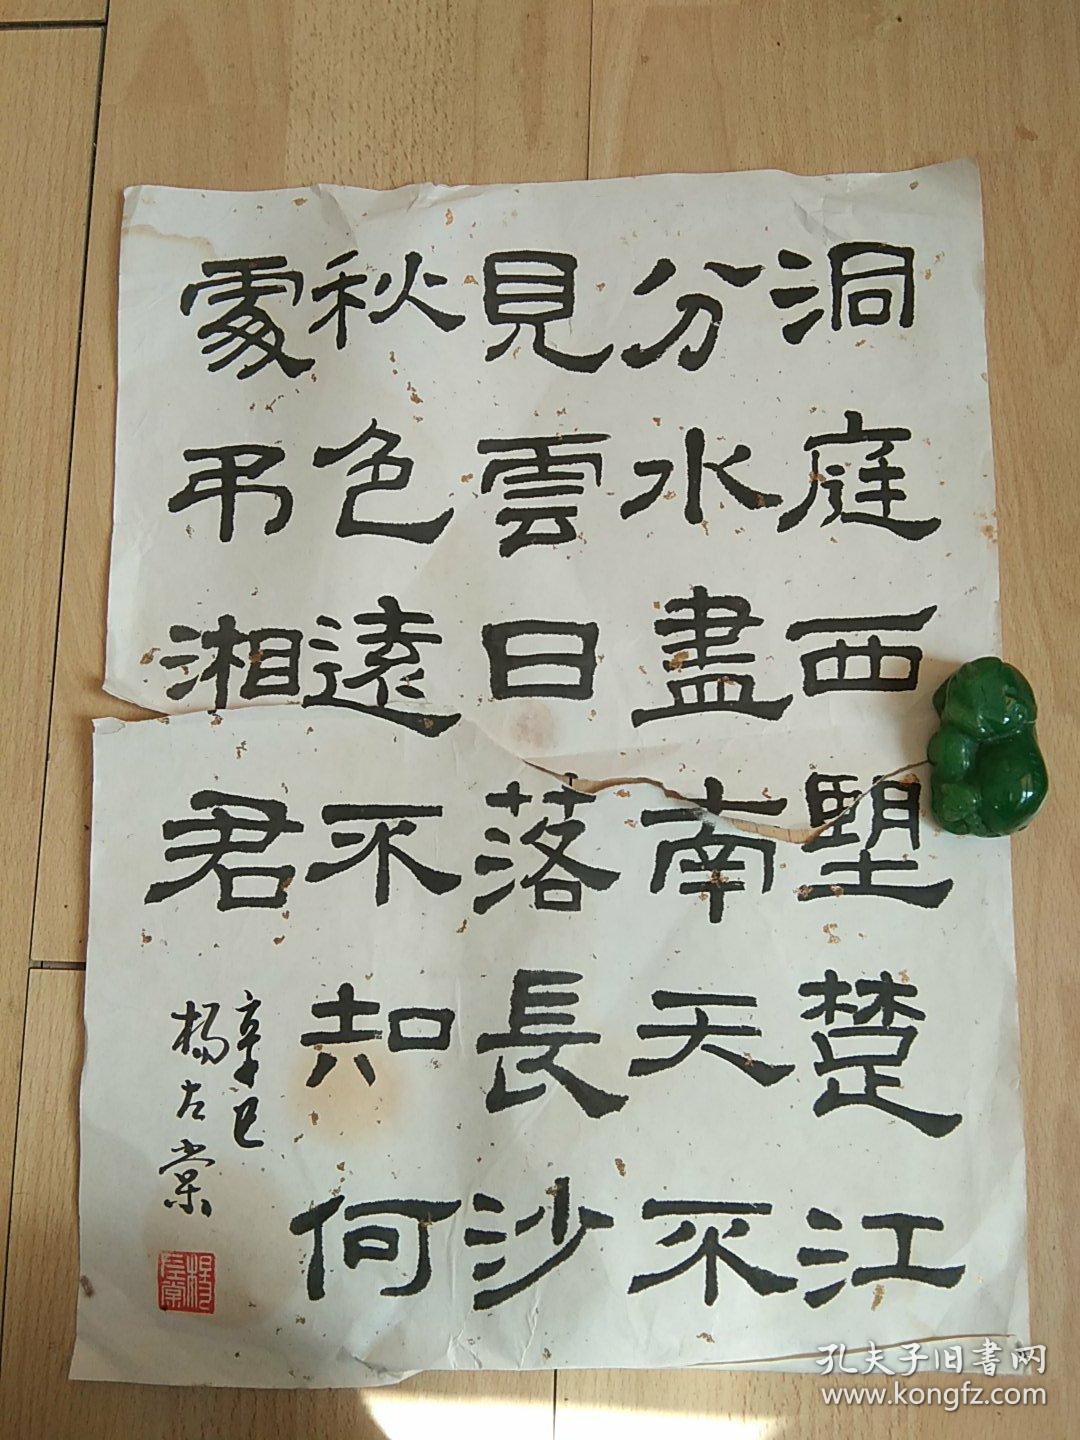 洞庭西朢楚江
分水盡南天不
見雲日落長沙
秋色遠不知何
處弔湘君
辛巳
楊左棠
楊左棠
孔夫子旧書网
www.kongfz.com